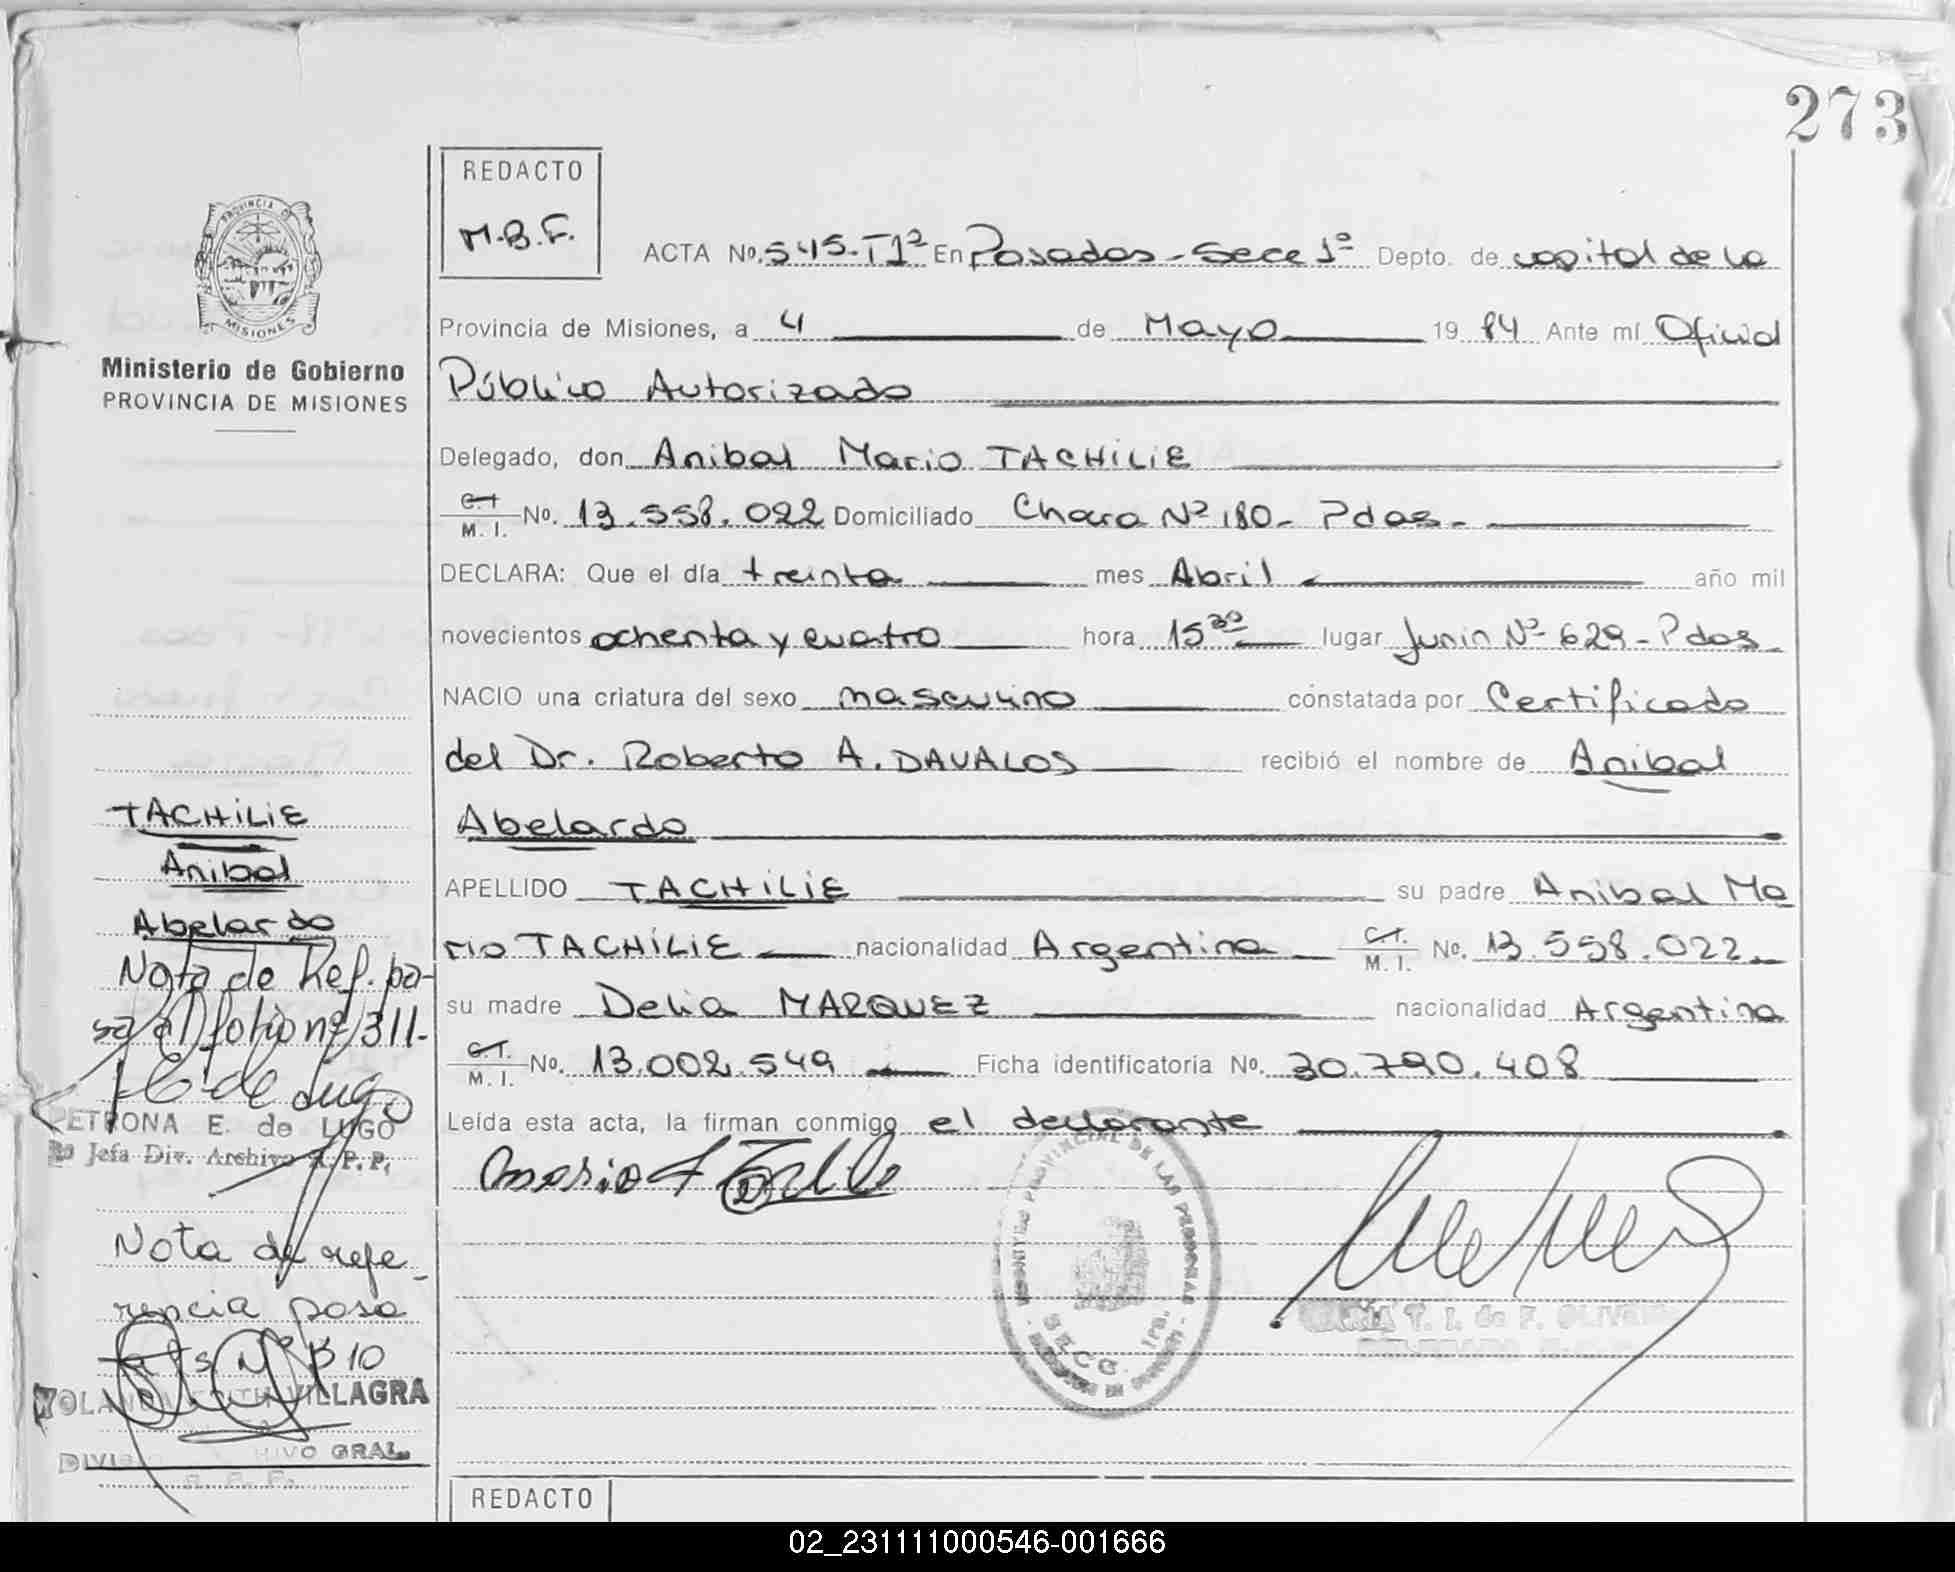 273
REDACTO
M.B.F.
PROVINCIA DE
MISIONES
Ministerio de Gobierno
PROVINCIA DE MISIONES
ACTA Nº. 545-T1º En Posadas - Secc 1º Depto. de capital de la
Provincia de Misiones, a 4 de Mayo 1984 Ante mí Oficial
Público Autorizado
Delegado, don Anibal Mario TACHILIE
C.I. M. I. Nº. 13.558.022 Domiciliado Chacra Nº 180 - Pdas -
DECLARA: Que el día treinta mes Abril año mil
novecientos ochenta y cuatro hora 15 30 lugar Junin Nº 629 - Pdas
NACIO una criatura del sexo masculino constatada por Certificado
del Dr. Roberto A. DAVALOS recibió el nombre de Anibal
Abelardo
APELLIDO TACHILIE su padre Anibal Ma
rio TACHILIE nacionalidad Argentina C.I. M. I. Nº. 13.558.022
su madre Delia MARQUEZ nacionalidad Argentina
C.I. M. I. Nº. 13.002.549 Ficha identificatoria Nº. 30.790.408
Leída esta acta, la firman conmigo el declarante
TACHILIE
Anibal
Abelardo
Nota de Ref. pa-
sa al folio nº 311-
PETRONA E. de LUGO
Jefa Div. Archivo R. P. P.
Nota de refe-
rencia pasa
Nº 310
VILLAGRA
GRAL.
PROVINCIAL DE LAS PERSONAS
SECC. 1ra.
T. I. de F.
REDACTO
02_231111000546-001666